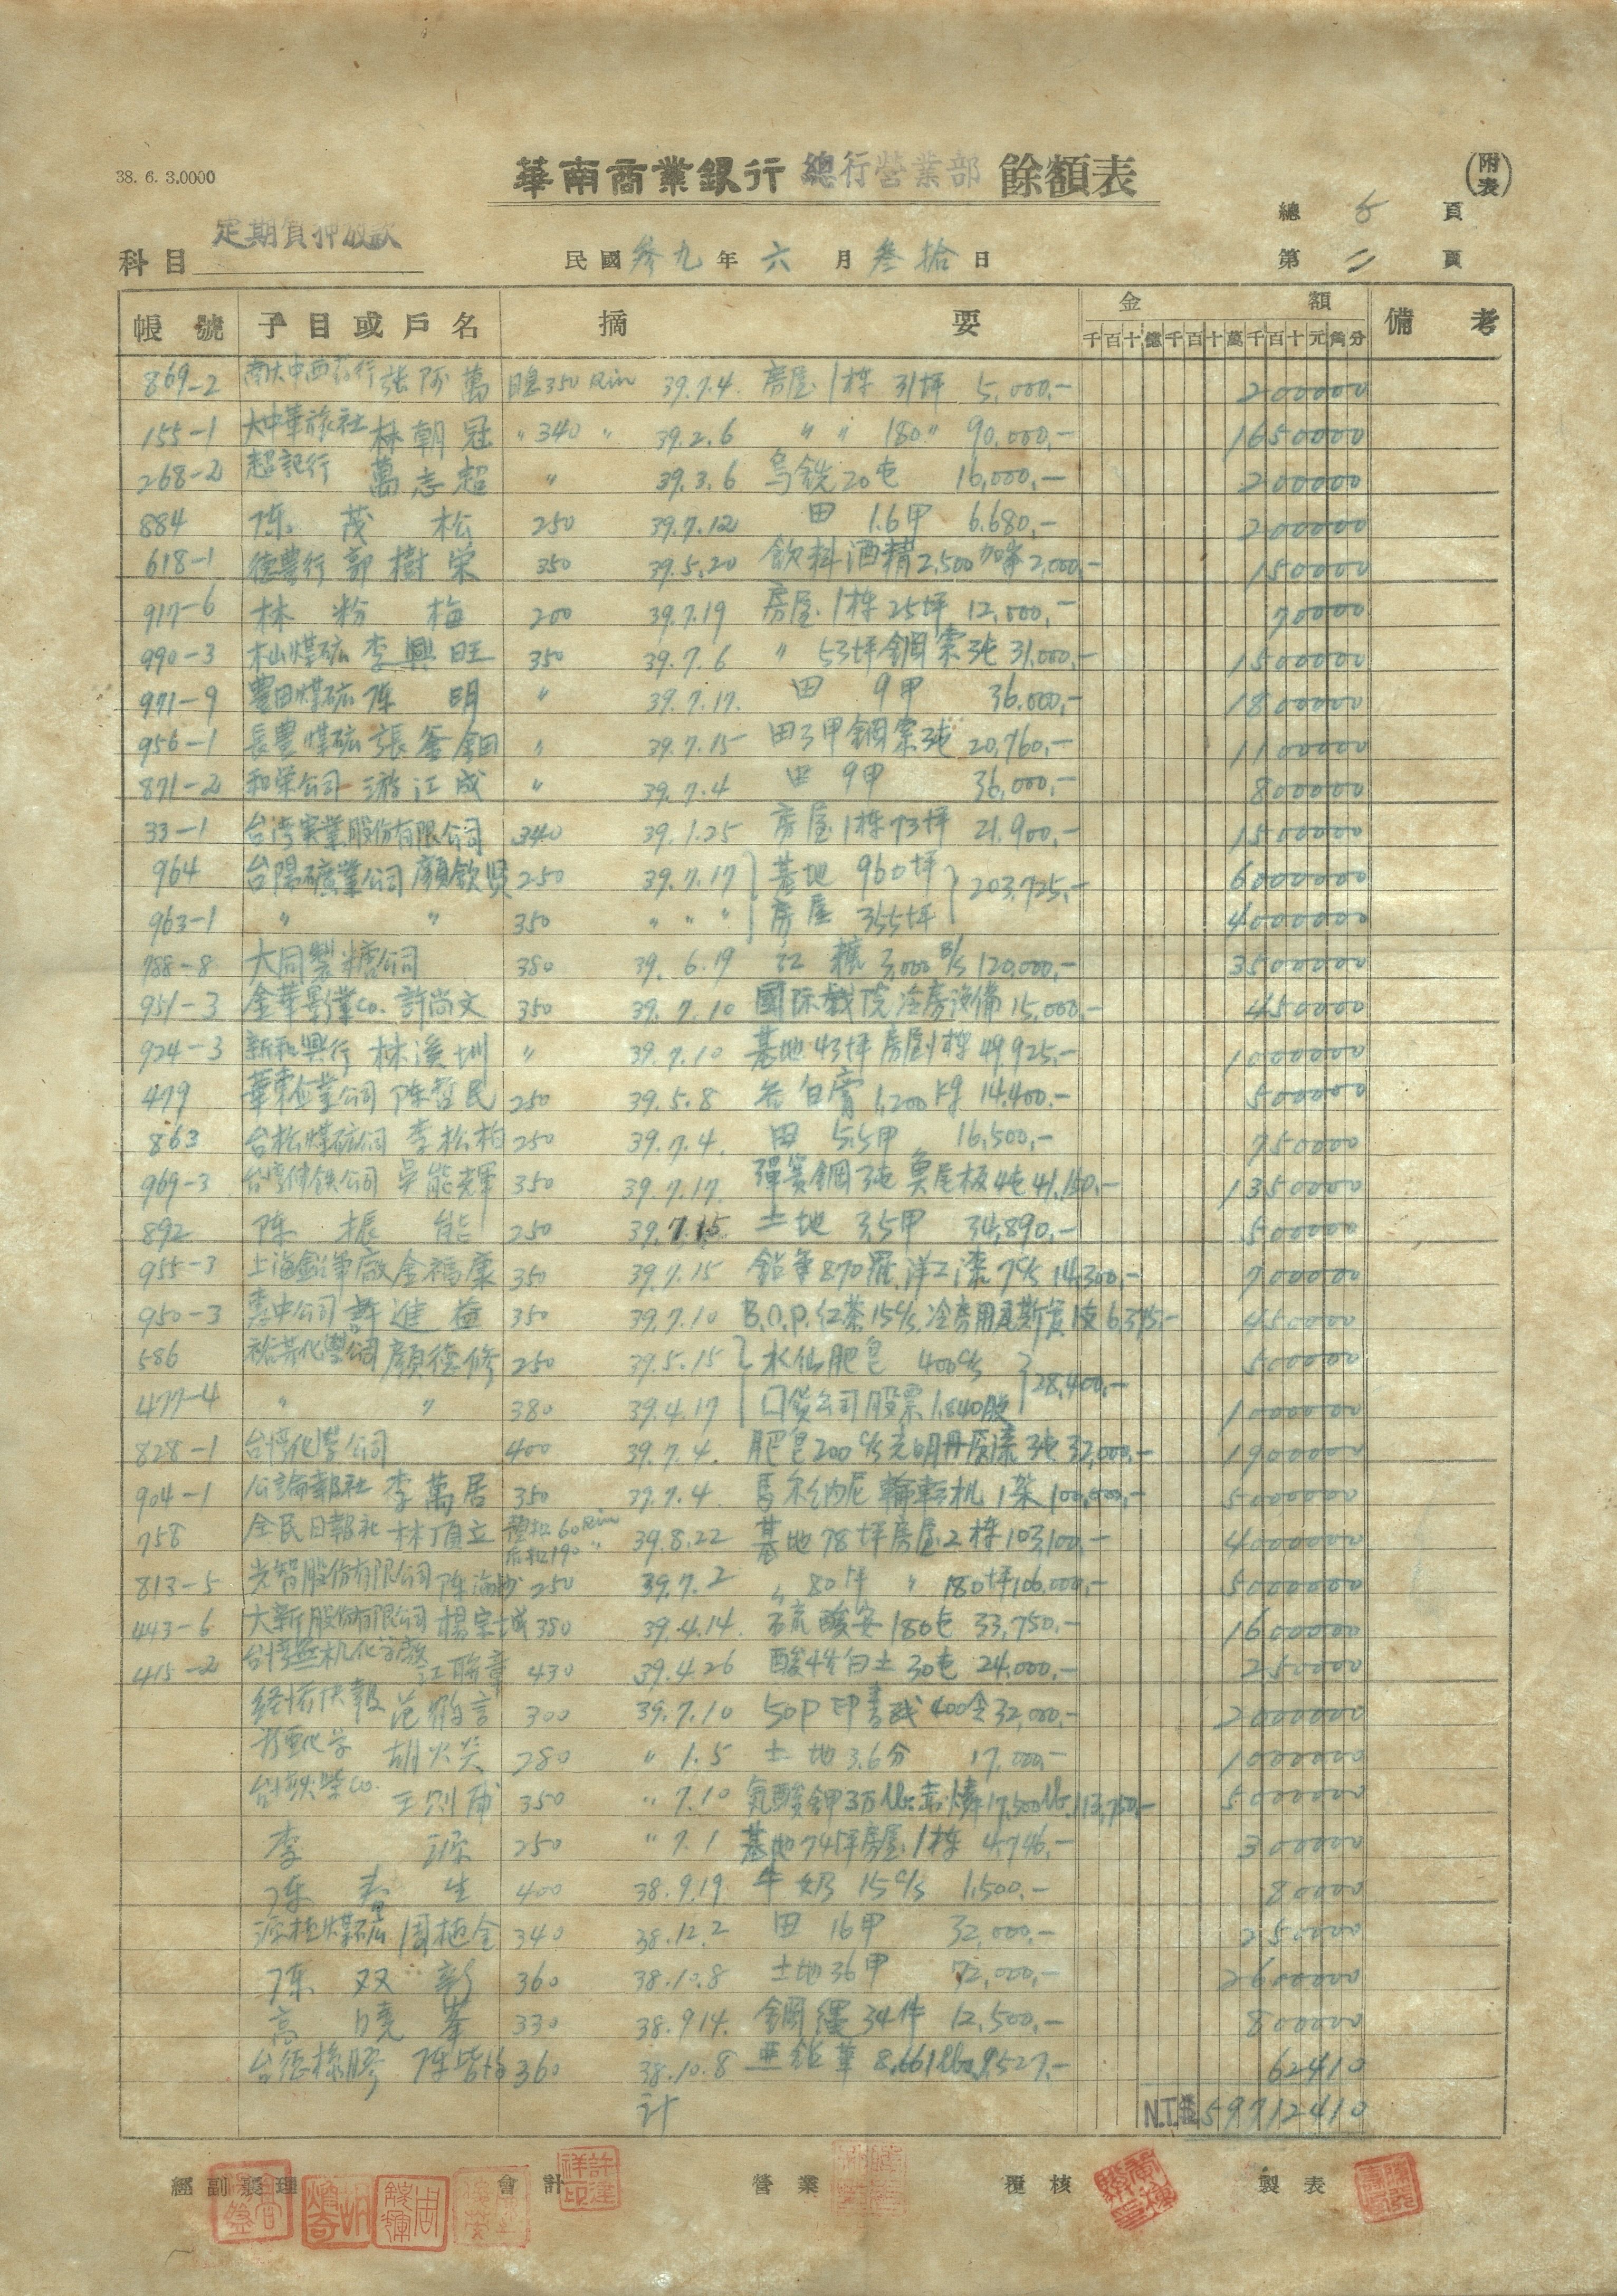 38. 6. 3.0000
華南商業銀行 總行營業部 餘額表
(附表)
總 頁
定期質押放款
科目
民國 叁九 年 六 月 叁拾 日
第 二 頁
帳號 子目或戶名 摘要 金額 備考
千百十億千百十萬千百十元角分
869-2 張阿萬 日息350 Rin 39.7.4 房屋1棟 31坪 5,000.- 200000
155-1 大中華旅社 林朝冠 〃340〃 39.2.6 〃〃 180〃 90,000.- 1650000
268-2 超記行 萬志超 〃 39.3.6 烏銑20屯 16,000.- 200000
884 陳茂松 250 39.7.12 田 1.6甲 6,680.- 200000
618-1 德豐行 郭樹榮 350 39.5.20 飲料酒精2,500加侖2,000.- 150000
917-6 林粉梅 200 39.7.19 房屋1棟25坪 12,000.- 70000
990-3 木山煤礦 李興旺 350 39.7.6 〃 53坪鋼索3屯 31,000.- 1500000
971-9 豐田煤礦 陳明 〃 39.7.17. 田 9甲 36,000.- 1800000
956-1 長豐煤礦 張 〃 39.7.15 田3甲鋼索3屯 20,760.- 1100000
871-2 和榮公司 游江成 〃 39.7.4 田 9甲 36,000.- 800000
33-1 台湾実業股份有限公司 340 39.1.25 房屋1棟73坪 21,900.- 1500000
964 台陽礦業公司 顏欽賢 250 39.7.17 基地 960坪 203,725.- 6000000
963-1 〃 〃 350 〃〃〃 房屋 355坪 4000000
788-8 大同製糖公司 380 39.6.19 糖 3,000 B/S 120,000.- 3500000
951-3 金華影業Co. 許尚文 350 39.7.10 國际戲院冷房設備15,000.- 450000
924-3 新和興行 林溪圳 〃 39.7.10 基地43坪房屋1棟 49,925.- 1000000
479 華東企業公司 陳哲民 250 39.5.8 1,200 kg 14,400.- 500000
863 台松煤礦公司 李松柏 250 39.7.4. 田 5.5甲 16,500.- 750000
969-3 吳能輝 350 39.7.17. 彈簧鋼3屯 魚尾板4屯41,150.- 1350000
892 陳振能 250 39.7.15 土地 3.5甲 34,890.- 500000
955-3 上海鉛筆廠 金福康 350 39.7.15 鉛筆870羅 7c/s 14,300.- 700000
950-3 許進益 350 39.7.10 B.O.P.紅茶15c/s. 6,375.- 450000
586 裕芳化學公司 顏德修 250 39.5.15 水仙肥皂 400c/s 28,400.- 500000
477-4 〃 〃 380 39.4.17 公司股票1,840股 1000000
828-1 台灣化學公司 400 39.7.4. 肥皂200c/s 3屯32,000.- 1900000
904-1 公論報社 李萬居 350 39.7.4. 輪転机1架 100,000.- 5000000
758 全民日報社 林頂立 39.8.22 基地78坪房屋2棟103,100.- 4000000
813-5 光智股份有限公司 250 39.7.2 〃 80坪 〃 180坪106,000.- 5000000
443-6 大新股份有限公司 楊宗城 380 39.4.14. 硫酸安180屯 33,750.- 1600000
415-2 台湾無机化学廠 江聯章 430 39.4.26 酸性白土30屯 24,000.- 250000
經濟快報 范鶴言 300 39.7.10 50P 印書紙400令32,000.- 2000000
280 〃1.5 土地3.6分 17,000.- 1000000
王則甫 350 〃7.10 17,500lb.113,750.- 5000000
李 源 250 〃7.1 基地74坪房屋1棟 4,746.- 300000
陳春生 400 38.9.19. 牛奶 15c/s 1,500.- 80000
周植全 340 38.12.2 田 16甲 32,000.- 250000
陳双彰 360 38.10.8 土地36甲 72,000.- 2600000
高曉峯 330 38.9.14. 鋼纜34件 12,500.- 800000
台德橡膠 360 38.10.8 亞鉛華 8,661lbs. 9,527.- 62410
計 N.T.$ 59712410
經副襄理 會計 營業 覆核 製表